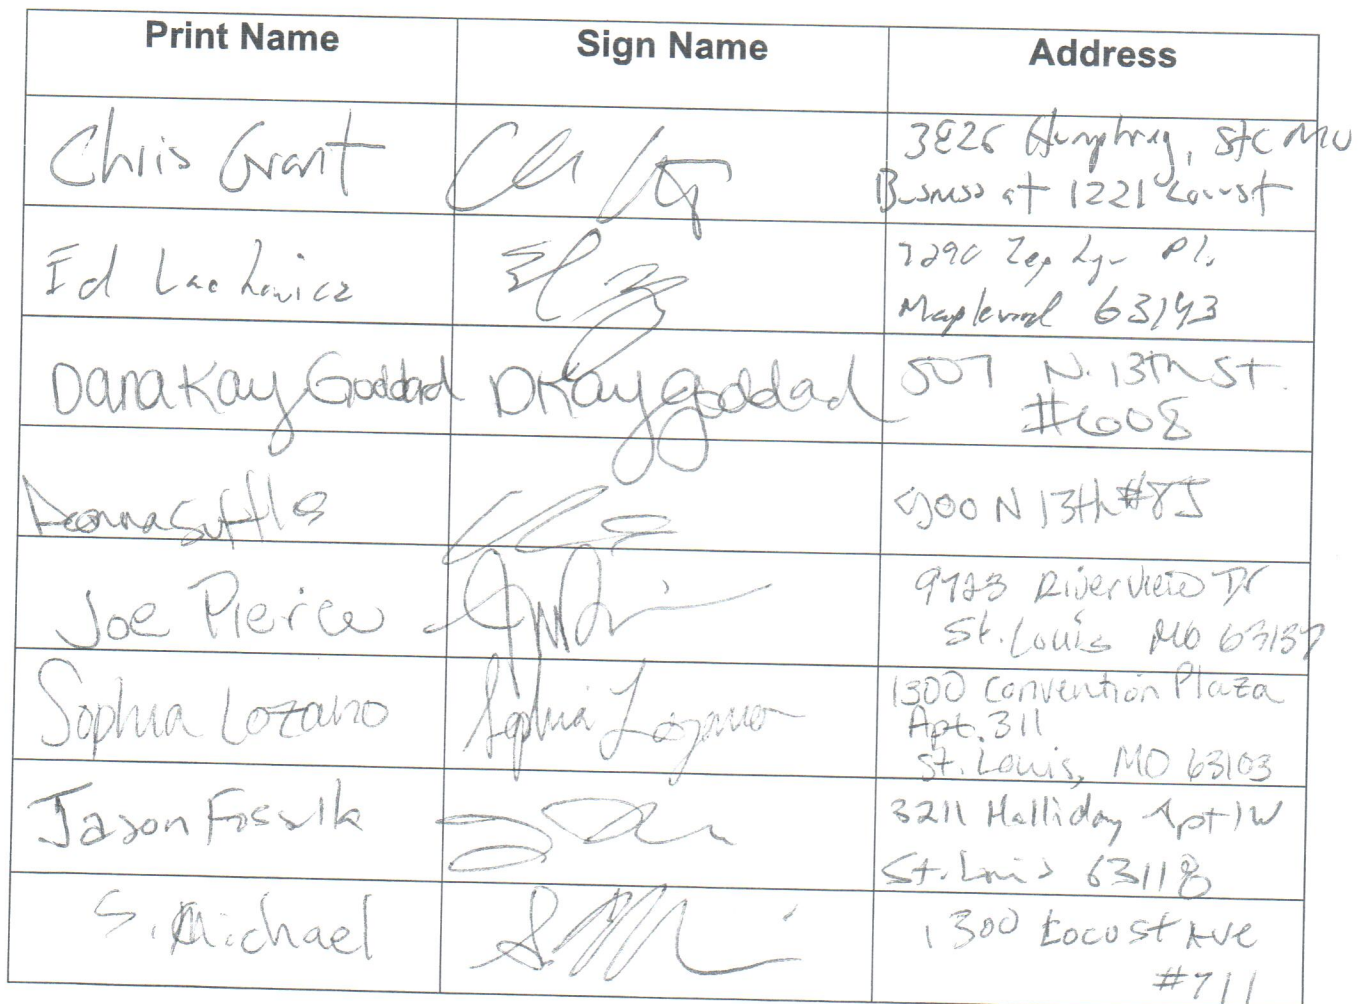 Print Name Sign Name Address
Chris Grant
3826 Humphrey, STC MO
Business at 1221 Locust
Ed
Pl.
Maplewood 63143
Dana Kay Goddard DKay Goddard 507 N. 13th St.
#608
Donna Suttle 400 N 13th #8J
Joe Pierce 9723 Riverview Dr
St. Louis Mo 63137
Sophia Lozano Sophia Lozano 1300 Convention Plaza
Apt. 311
St. Louis, MO 63103
Jason 3211 Halliday Apt 1W
St. Louis 63118
S. Michael 1300 Locust Ave
#711